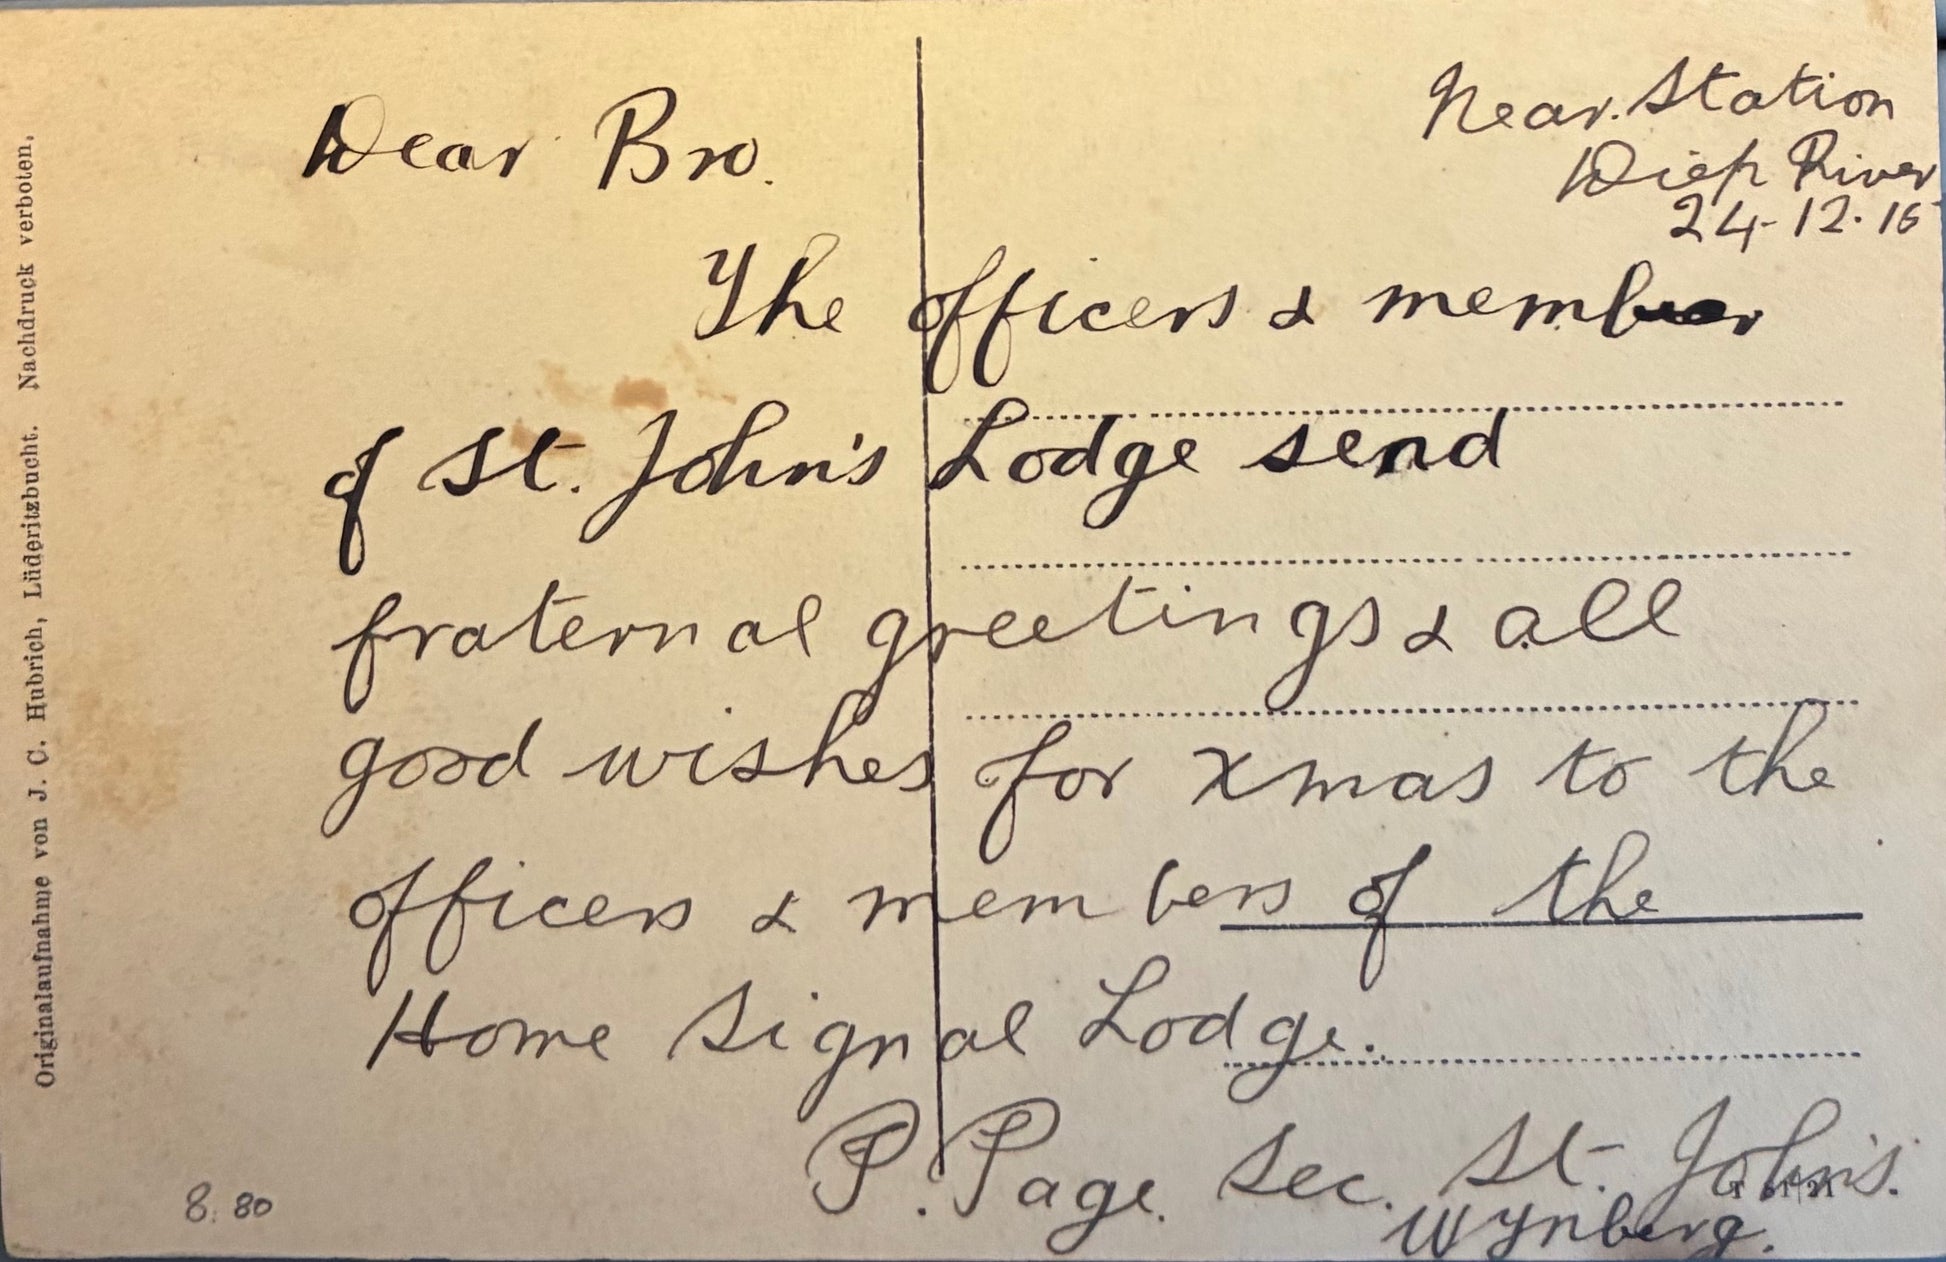 Near. Station
Diep River
24-12-16
Dear Bro.
The officers & member
of St. John's Lodge send
fraternal greetings & all
good wishes for xmas to the
officers & members of the
Home Signal Lodge.
P. Page. Sec. St. John's.
Wynberg.
8.80
Originalaufnahme von J. C. Hubrich, Lüderitzbucht. Nachdruck verboten.